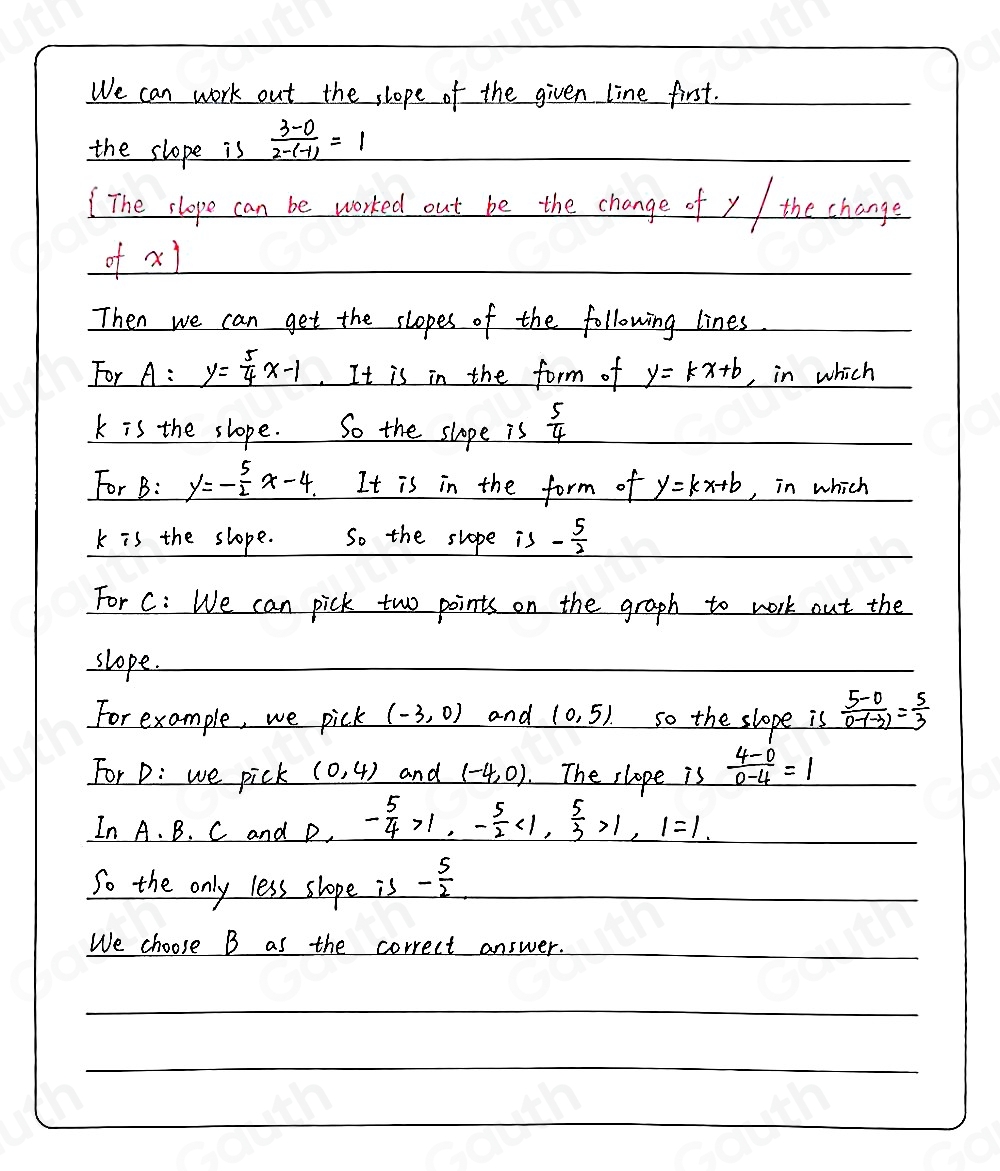 We can work out the slope of the given line first.
the slope is \frac{3-0}{2-(-1)} = 1
{The slope can be worked out be the change of y / the change
of x}
Then we can get the slopes of the following lines.
For A: y=\frac{5}{4}x-1. It is in the form of y=kx+b, in which
k is the slope. So the slope is \frac{5}{4}
For B: y=-\frac{5}{2}x-4. It is in the form of y=kx+b, in which
k is the slope. So the slope is -\frac{5}{2}
For C: We can pick two points on the graph to work out the
slope.
For example, we pick (-3,0) and (0,5). so the slope is \frac{5-0}{0-(-3)}=\frac{5}{3}
For D: we pick (0,4) and (-4,0). The slope is \frac{4-0}{0-4}=1
In A.B.C and D, -\frac{5}{4}>1, -\frac{5}{2}<1, \frac{5}{3}>1, 1=1.
So the only less slope is -\frac{5}{2}.
We choose B as the correct answer.
Gauth